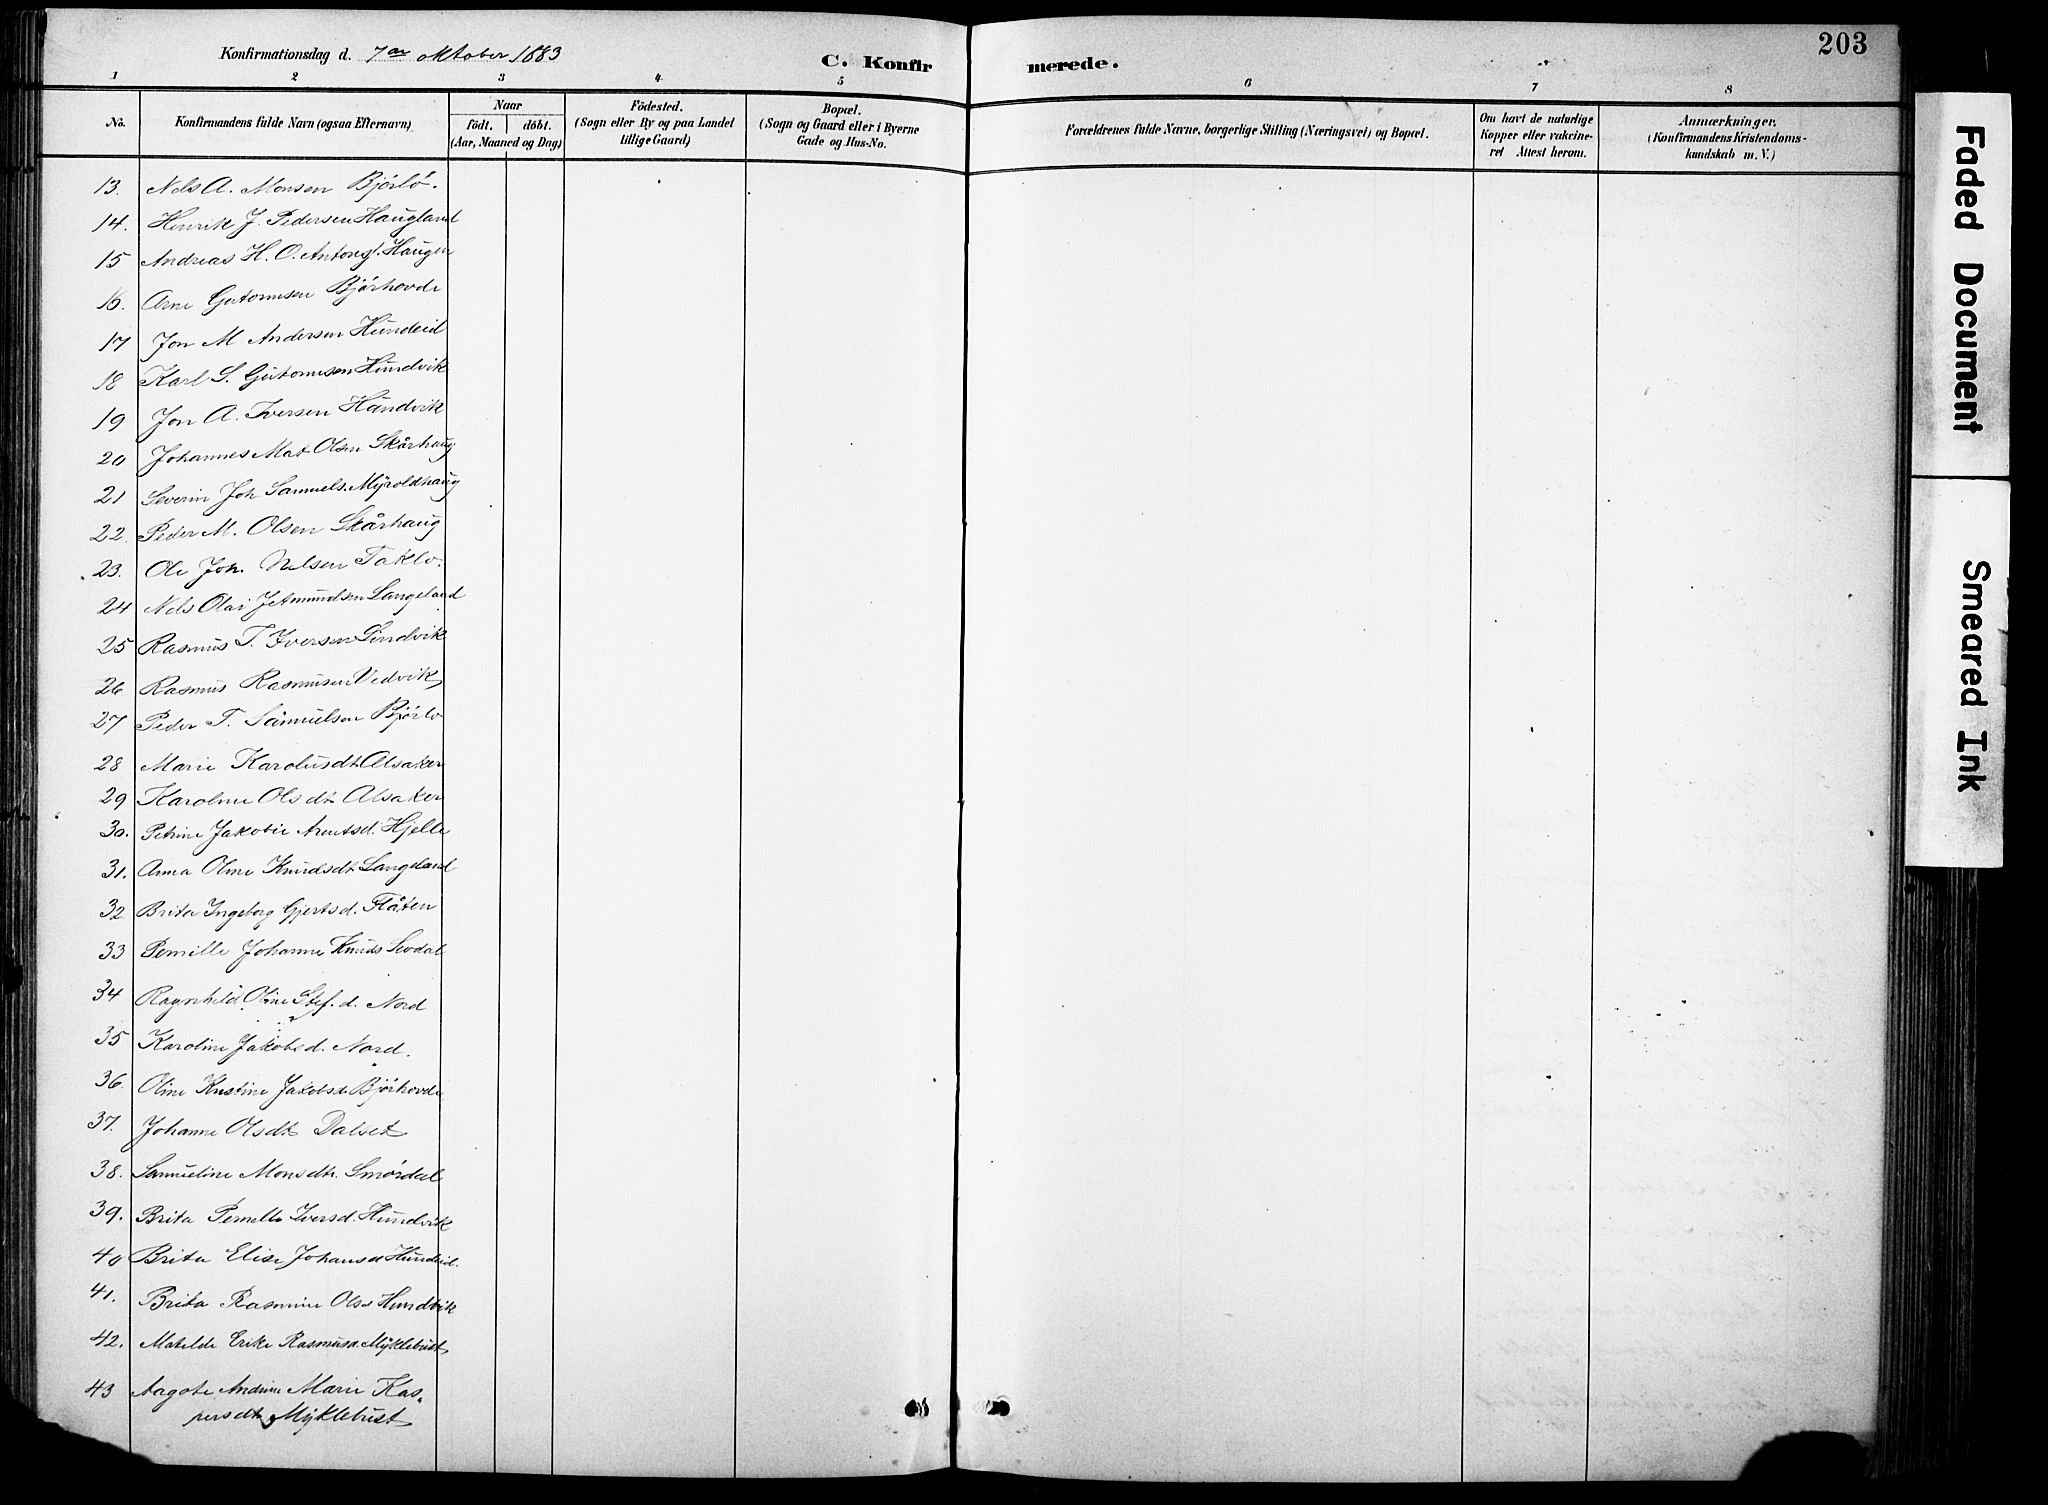 Konfirmationsdag d. 7de oktober 1883
C. Konfirmerede.
203
1 2 3 4 5 6 7 8
No.
Konfirmandens fulde Navn (ogsaa Efternavn)
Naar
födt. döbt.
(Aar, Maaned og Dag)
Födested.
(Sogn eller By og paa Landet
tillige Gaard)
Bopæl.
(Sogn og Gaard eller i Byerne
Gade og Hus-No.
Forældrenes fulde Navne, borgerlige Stilling (Næringsvei) og Bopæl.
Om havt de naturlige
Kopper eller vakcine-
ret Attest herom.
Anmærkninger,
(Konfirmandens Kristendoms-
kundskab m. V.)
13. Nels A. Monsen Bjørlö.
14. Henrik J. Pedersen Haugland
15 Andreas H. O. Haugen
16. Arne Gutormsen Bjørhovde
17 Jon M Andersen Hundeid
18 Karl S. Gutormsen Hundvik
19 Jon A. Iversen Hundvik
20 Johannes Mat Olsen Skårhaug
21 Severin Joh Samuels. Myroldhaug
22. Peder M. Olsen Skårhaug
23. Ole Joh. Nelsen Taklo.
24 Nels Olai Jetmundsen Langeland
25 Rasmus T. Iversen Sindvik
26 Rasmus Rasmusen Vedvik
27 Peder T. Samuelsen Bjørlo
28 Marie Karolusdt. Alsaker
29 Karoline Olsdt Alsaker
30. Petrine Jakobie Arentsd. Hjelle
31. Anna Oline Knudsdt. Langeland
32 Brita Ingeborg Gjertsd. Flåten
33 Pernille Johanne Knuds Levdal
34 Ragnhild Oline Stef. d. Nord
35 Karoline Jakobsd. Nord.
36. Oline Kristine Jakobsd. Bjørhovde
37. Johanne Olsdt Dalset
38. Samueline Monsdt. Smørdal
39. Brita Pernelle Iversd. Hundvik
40 Brita Elise Johansd Hundeid.
41. Brita Rasmine Olsd Hundvik
42. Matilde Erike Rasmusd. Myklebust
43 Aagote Andrine Marie Kas-
persdt. Myklebust
Faded Document
Smeared Ink